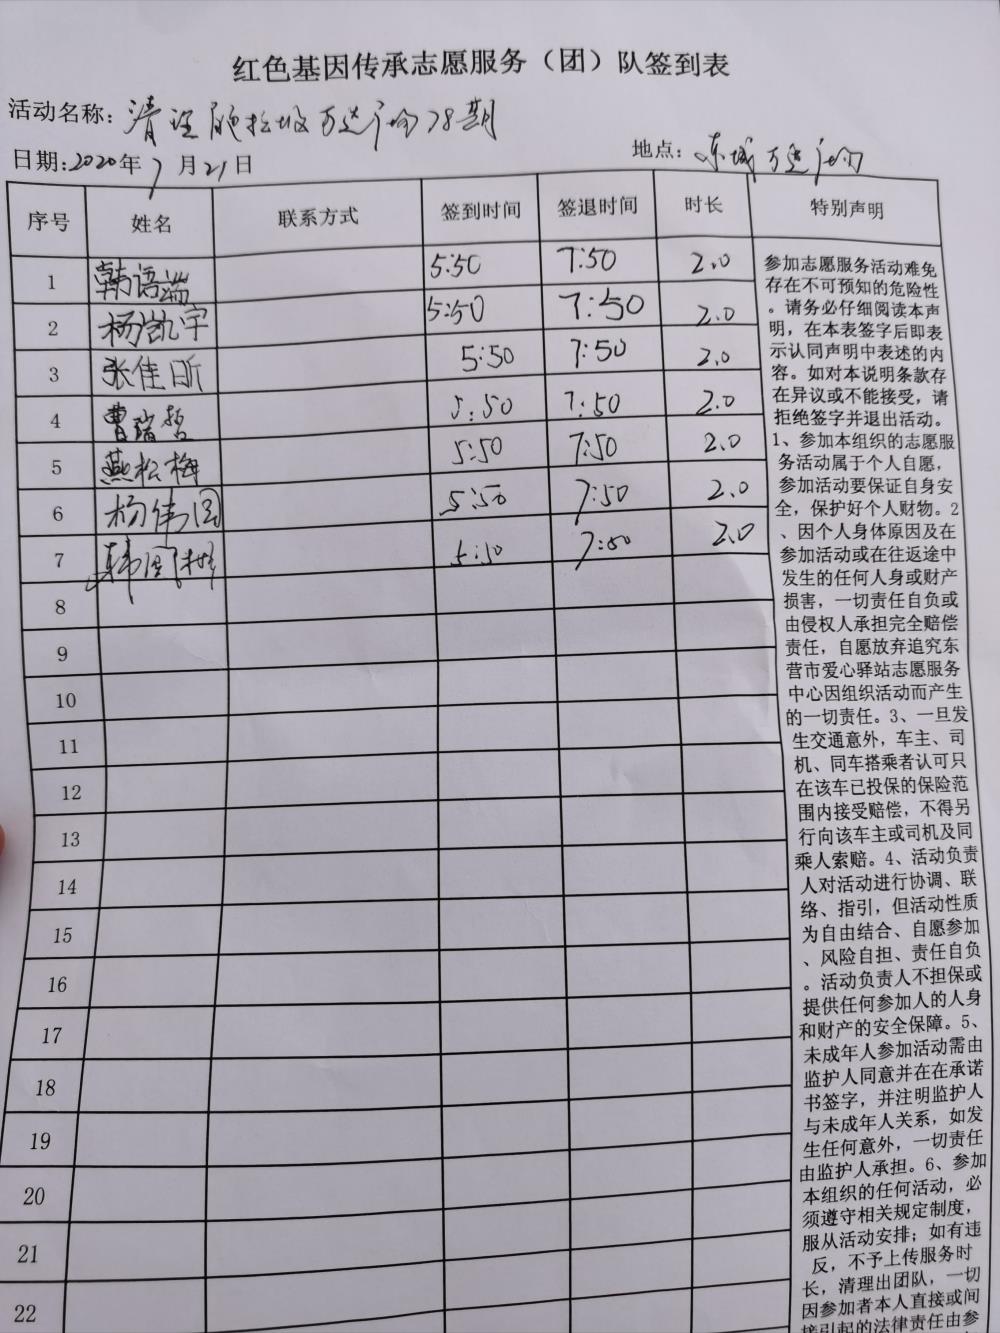 红色基因传承志愿服务（团）队签到表
活动名称：清理 垃圾万达广场78期
日期：2020年7月21日 地点：东城万达广场
序号 姓名 联系方式 签到时间 签退时间 时长 特别声明
1 韩语端 5:50 7:50 2.0
2 杨凯宇 5:50 7:50 2.0
3 张佳昕 5:50 7:50 2.0
4 曹瑞哲 5:50 7:50 2.0
5 燕松梅 5:50 7:50 2.0
6 杨伟国 5:50 7:50 2.0
7 韩国彬 5:50 7:50 2.0
8
9
10
11
12
13
14
15
16
17
18
19
20
21
22
参加志愿服务活动难免
存在不可预知的危险性
。请务必仔细阅读本声
明，在本表签字后即表
示认同声明中表述的内
容。如对本说明条款存
在异议或不能接受，请
拒绝签字并退出活动。
1、参加本组织的志愿服
务活动属于个人自愿，
参加活动要保证自身安
全，保护好个人财物。2
、因个人身体原因及在
参加活动或在往返途中
发生的任何人身或财产
损害，一切责任自负或
由侵权人承担完全赔偿
责任，自愿放弃追究东
营市爱心驿站志愿服务
中心因组织活动而产生
的一切责任。3、一旦发
生交通意外，车主、司
机、同车搭乘者认可只
在该车已投保的保险范
围内接受赔偿，不得另
行向该车主或司机及同
乘人索赔。4、活动负责
人对活动进行协调、联
络、指引，但活动性质
为自由结合、自愿参加
、风险自担、责任自负
。活动负责人不担保或
提供任何参加人的人身
和财产的安全保障。5、
未成年人参加活动需由
监护人同意并在在承诺
书签字，并注明监护人
与未成年人关系，如发
生任何意外，一切责任
由监护人承担。6、参加
本组织的任何活动，必
须遵守相关规定制度，
服从活动安排；如有违
反，不予上传服务时
长，清理出团队，一切
因参加者本人直接或间
接引起的法律责任由参